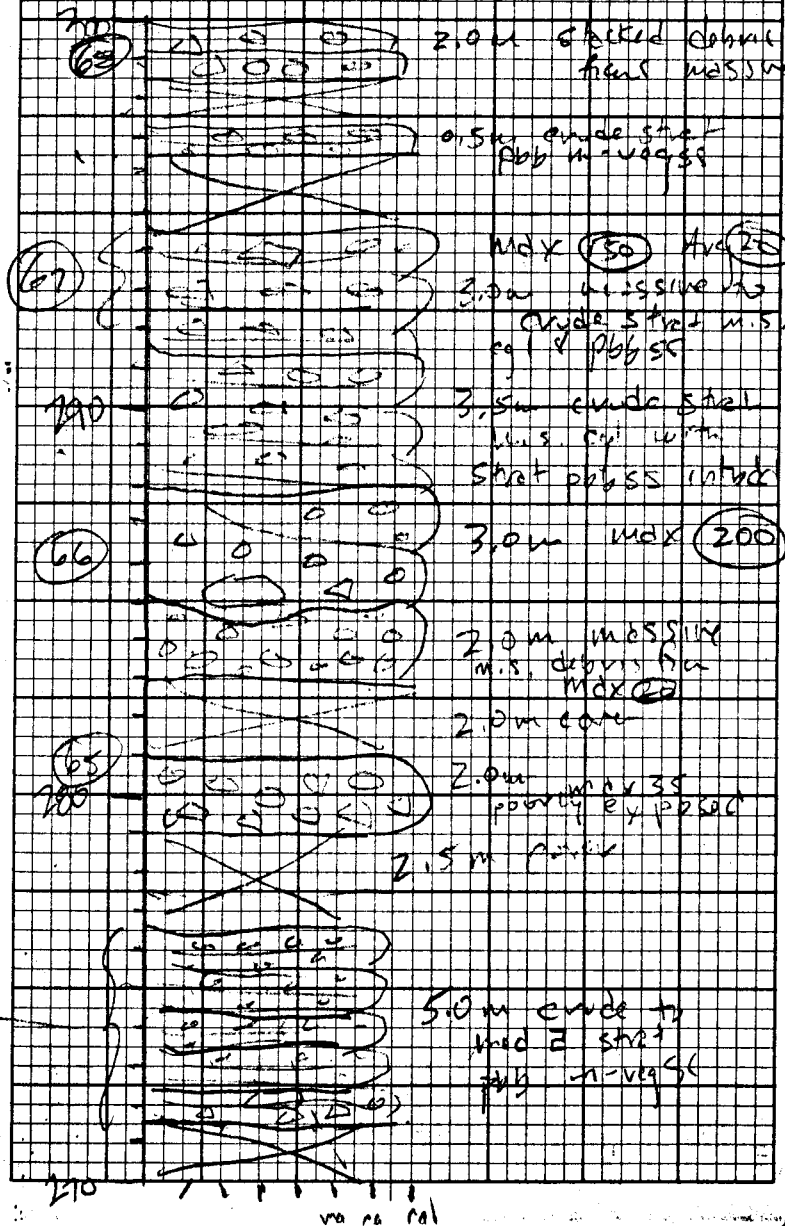 300
68
2.0m stacked debris
flows massive
0.5m crude strat
pbb m-vcgss
Max 150 Avg 20
67
3.0m massive to
crude strat m.s.
cgl & pbb ss
290
3.5m crude strat
m.s. cgl with
strat pbbss intbd
3.0m max 200
66
2.0m massive
m.s. debris flow
max 20
2.0m cover
65
2.0m max 35
280
poorly exposed
2.5m cover
5.0m crude to
mod strat
pbb m-vcgss
270
vc cgl